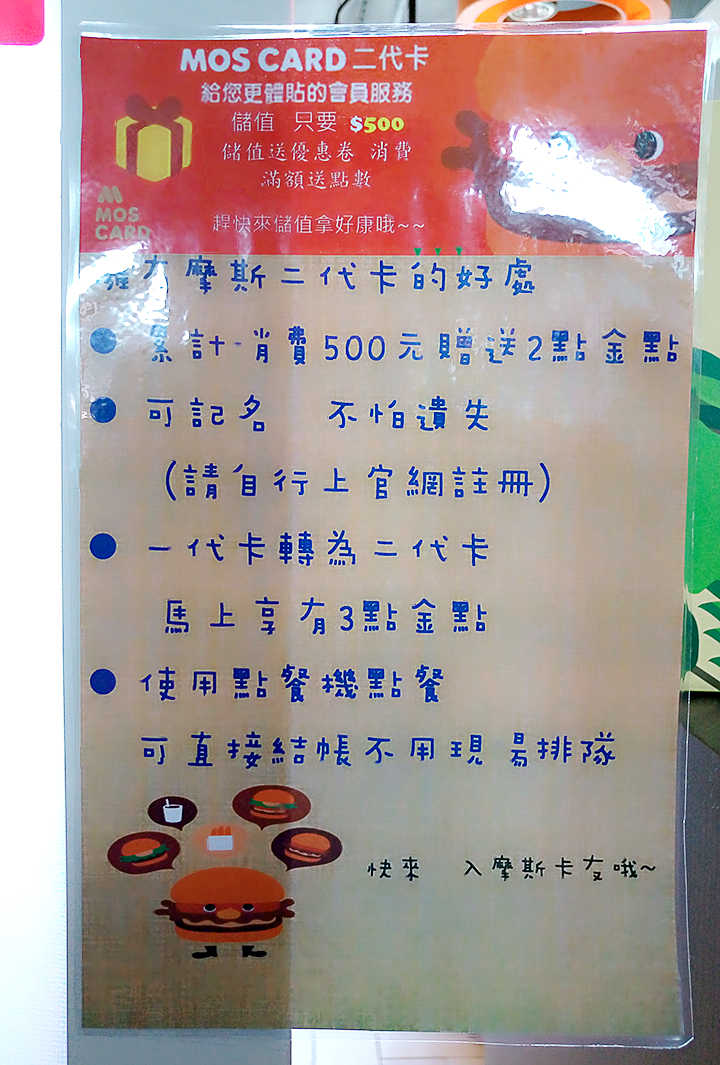 MOS CARD 二代卡
給您更體貼的會員服務
儲值 只要 $500
儲值送優惠卷 消費
滿額送點數
MOS
CARD
趕快來儲值拿好康哦~~
擁有摩斯二代卡的好處
● 累計消費500元贈送2點金點
● 可記名 不怕遺失
(請自行上官網註冊)
● 一代卡轉為二代卡
馬上享有3點金點
● 使用點餐機點餐
可直接結帳不用現場排隊
快來 入摩斯卡友哦~